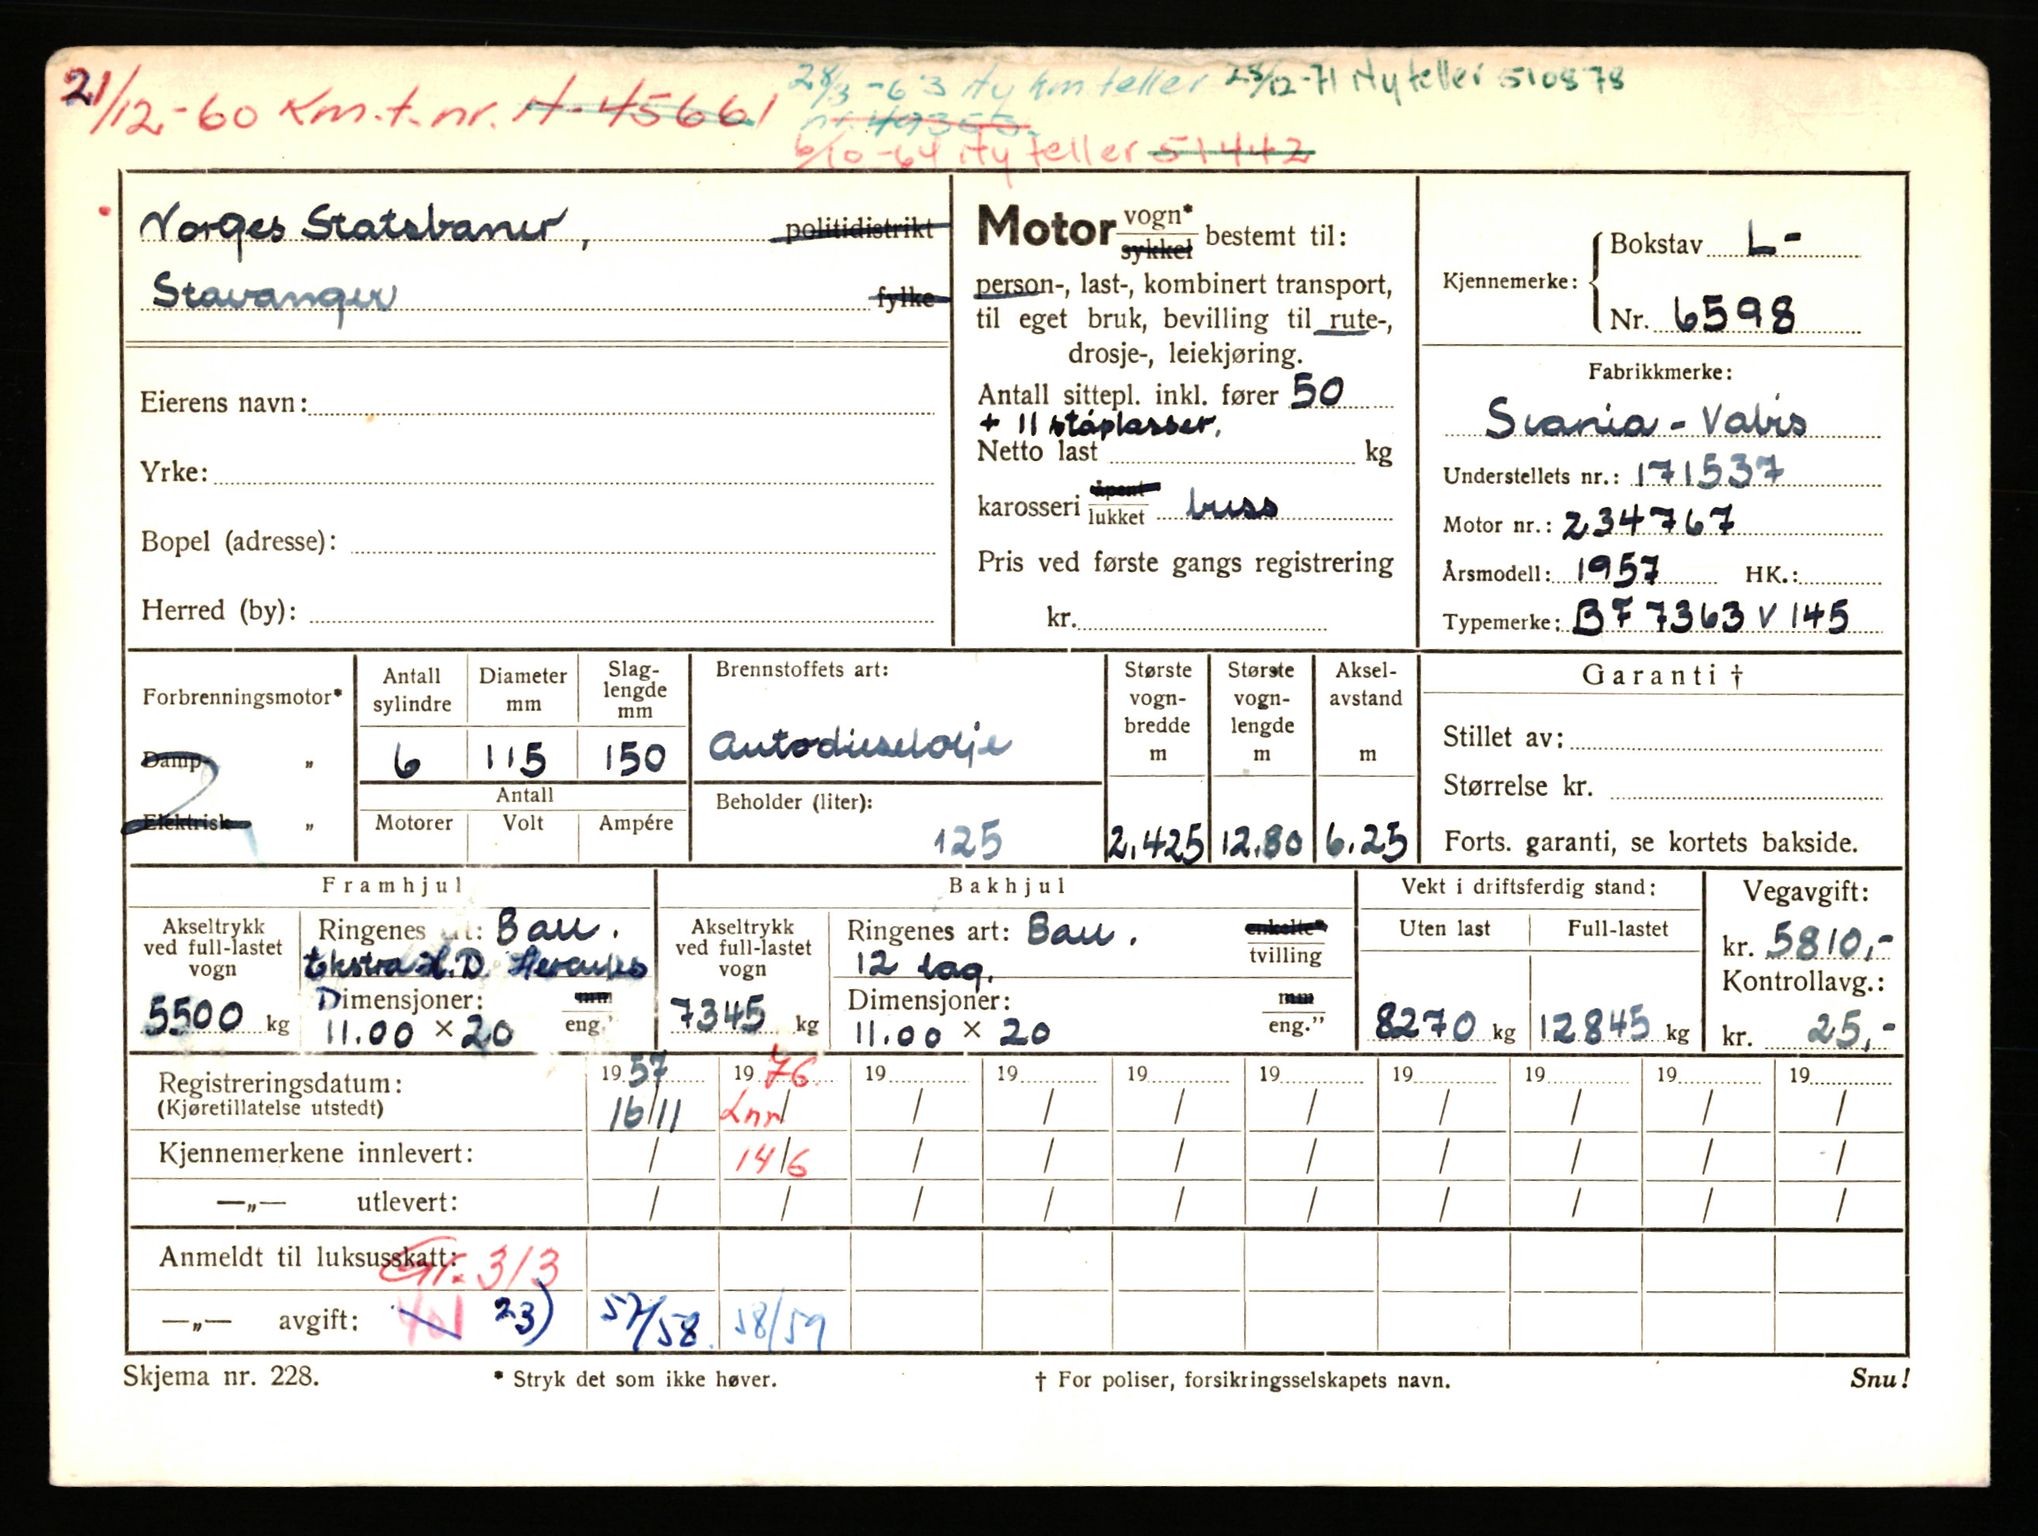 21/12-60 Km.t.nr. H-45661
28/3-63 Ny km teller
nr. 49353.
28/12-71 Ny teller 510878
6/10-64 Ny teller 51442
Norges Statsbaner, politidistrikt
Stavanger fylke
Eierens navn:
Yrke:
Bopel (adresse):
Herred (by):
Motor vogn* sykkel bestemt til:
person-, last-, kombinert transport,
til eget bruk, bevilling til rute-,
drosje-, leiekjøring.
Antall sittepl. inkl. fører 50
+ 11 ståplasser.
Netto last kg
karosseri åpent lukket buss
Pris ved første gangs registrering
kr.
Kjennemerke: Bokstav L-
Nr. 6598
Fabrikkmerke:
Scania-Vabis
Understellets nr.: 171537
Motor nr.: 234767
Årsmodell: 1957 HK.:
Typemerke: BF 7363 V 145
Forbrenningsmotor*
Damp- „
Elektrisk „
Antall sylindre
6
Diameter mm
115
Slag-lengde mm
150
Antall
Motorer Volt Ampére
Brennstoffets art:
Autodieselolje
Beholder (liter):
125
Største vogn-bredde m
2.425
Største vogn-lengde m
12.80
Aksel-avstand m
6.25
Garanti †
Stillet av:
Størrelse kr.
Forts. garanti, se kortets bakside.
Framhjul
Akseltrykk ved full-lastet vogn
5500 kg
Ringenes art: Ball.
Ekstra H.D. Hercules
Dimensjoner: mm
11.00 × 20 eng.”
Bakhjul
Akseltrykk ved full-lastet vogn
7345 kg
Ringenes art: Ball. enkelte*
12 lag. tvilling
Dimensjoner: mm
11.00 × 20 eng.”
Vekt i driftsferdig stand:
Uten last Full-lastet
8270 kg 12845 kg
Vegavgift:
kr. 5810,-
Kontrollavg.:
kr. 25,-
Registreringsdatum: 1957 1976 19 19 19 19 19 19 19 19
(Kjøretillatelse utstedt) 16/11 Lnr/ / / / / / / / /
Kjennemerkene innlevert: / 14/6 / / / / / / / /
—„— utlevert: / / / / / / / / / /
Anmeldt til luksusskatt: Gr. 3/3
—„— avgift: 401 23) 57/58 58/59
Skjema nr. 228. * Stryk det som ikke høver. † For poliser, forsikringsselskapets navn. Snu!